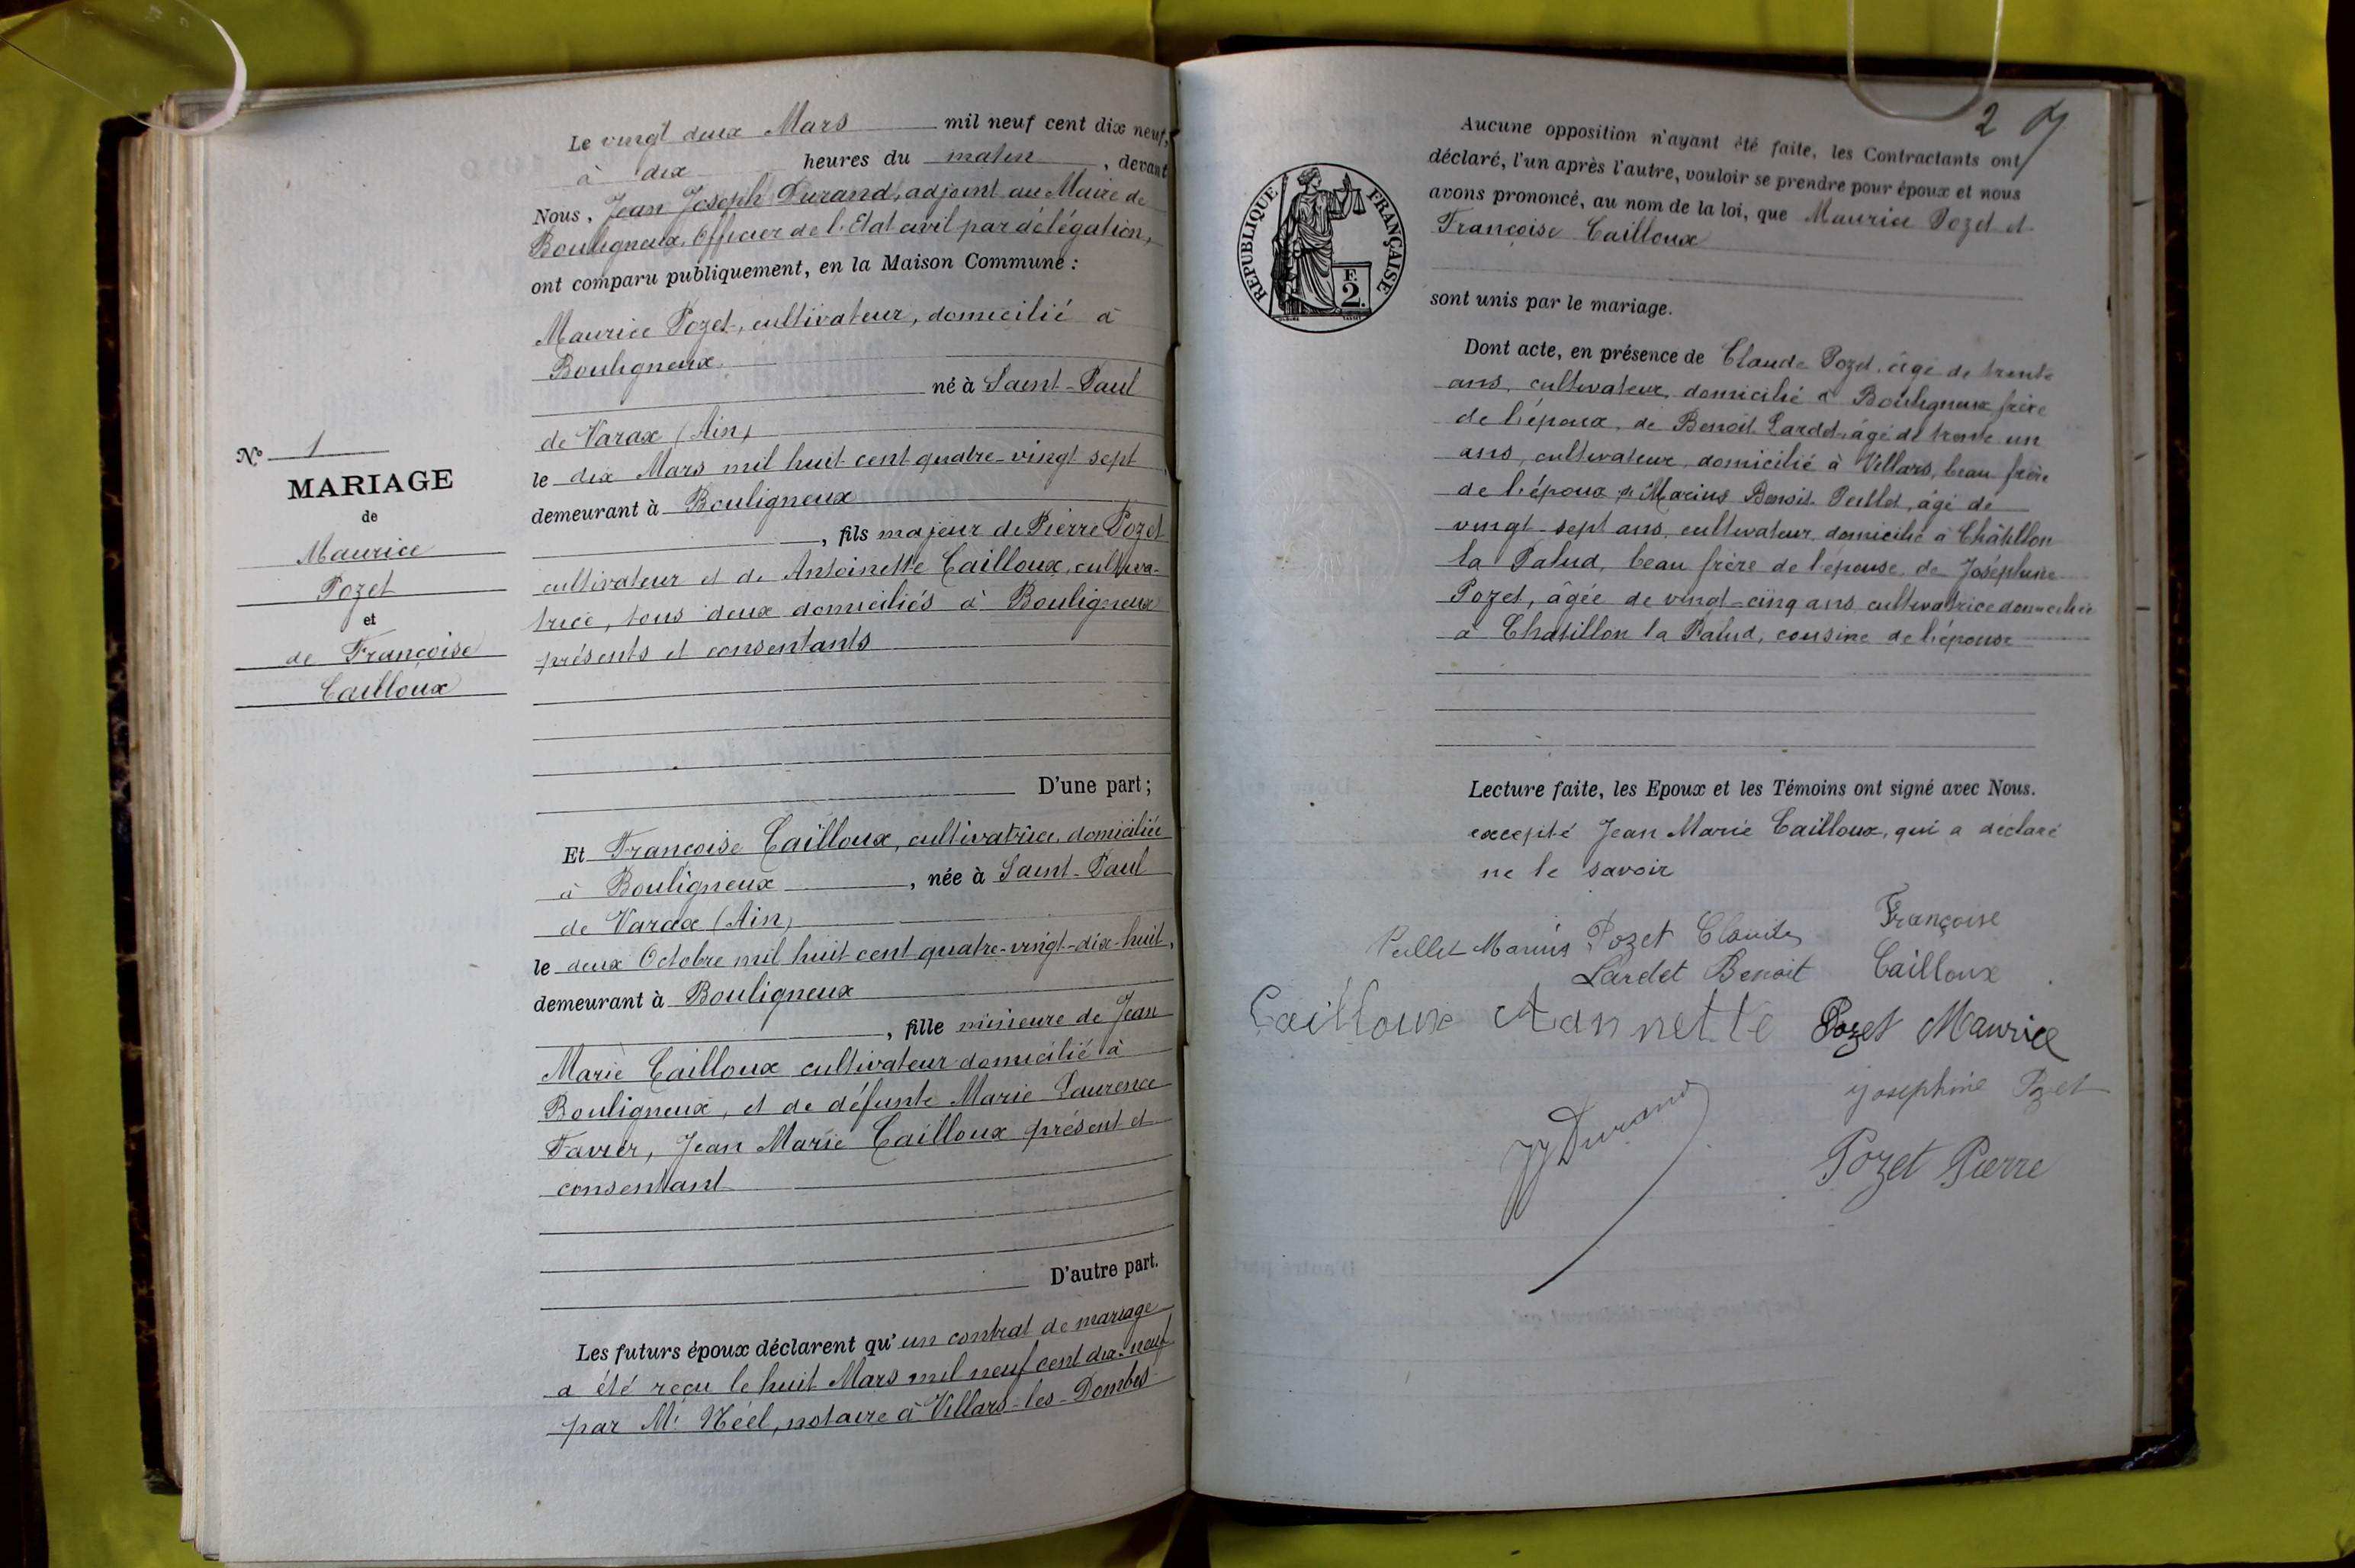 Le vingt deux Mars mil neuf cent dix neuf,
à dix heures du matin, devant
Nous, Jean Joseph Durand, adjoint au Maire de
Bouligneux, Officier de l'Etat civil par délégation,
ont comparu publiquement, en la Maison Commune :
Maurice Pozet, cultivateur, domicilié à
Bouligneux
né à Saint-Paul
de Varax (Ain)
le dix Mars mil huit cent quatre-vingt sept
demeurant à Bouligneux
, fils majeur de Pierre Pozet
cultivateur et de Antoinette Cailloux, cultiva-
trice, tous deux domiciliés à Bouligneux
présents et consentants
D'une part ;
Nº 1
MARIAGE
de
Maurice
Pozet
et
de Françoise
Cailloux
Et Françoise Cailloux, cultivatrice, domiciliée
à Bouligneux, née à Saint-Paul
de Varax (Ain)
le deux Octobre mil huit cent quatre-vingt-dix-huit,
demeurant à Bouligneux
, fille mineure de Jean
Marie Cailloux cultivateur domicilié à
Bouligneux, et de défunte Marie Laurence
Favier, Jean Marie Cailloux présent et
consentant
D'autre part.
Les futurs époux déclarent qu'un contrat de mariage
a été reçu le huit Mars mil neuf cent dix-neuf
par Me Néel, notaire à Villars-les-Dombes
2
Aucune opposition n'ayant été faite, les Contractants ont
déclaré, l'un après l'autre, vouloir se prendre pour époux et nous
avons prononcé, au nom de la loi, que Maurice Pozet et
Françoise Cailloux
sont unis par le mariage.
REPUBLIQUE FRANÇAISE
F.
2.
Dont acte, en présence de Claude Pozet, âgé de trente
ans, cultivateur, domicilié à Bouligneux frère
de l'époux, de Benoit Lardet, âgé de trente un
ans, cultivateur, domicilié à Villars, beau frère
de l'époux de Marius Benoit Peillet, âgé de
vingt-sept ans, cultivateur domicilié à Châtillon
la Palud, beau frère de l'épouse, de Joséphine
Pozet, âgée de vingt-cinq ans cultivatrice domiciliée
à Chatillon la Palud, cousine de l'épouse
Lecture faite, les Epoux et les Témoins ont signé avec Nous.
excepté Jean Marie Cailloux, qui a déclaré
ne le savoir
Peillet Marius Pozet Claude Françoise
Lardet Benoit Cailloux
Cailloux Annette Pozet Maurice
Josephine Pozet
JJ Durand
Pozet Pierre